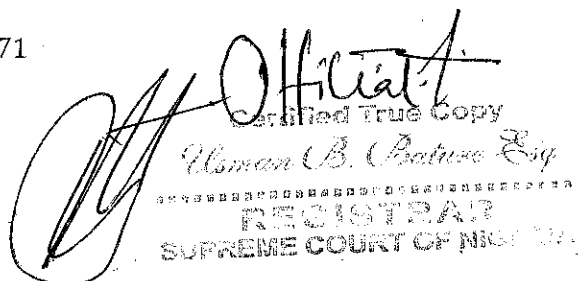 71
Official
Certified True Copy
Usman B. Bature Esq
REGISTRAR
SUPREME COURT OF